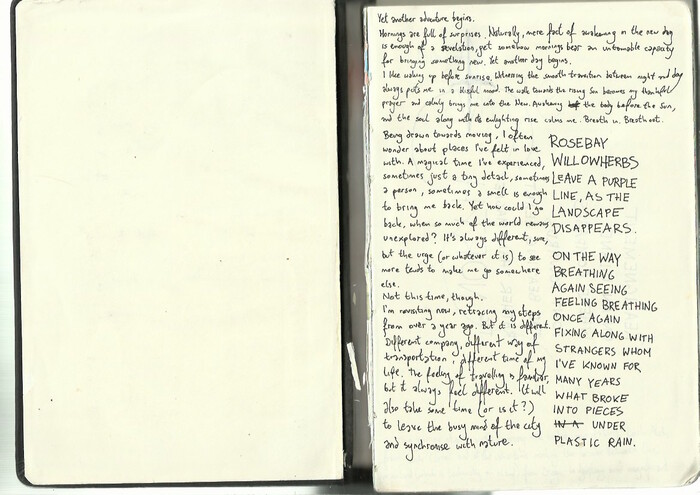 Yet another adventure begins.
Mornings are full of surprises. Naturally, mere fact of awakening in the new day
is enough of a revelation, yet somehow mornings bear an untamable capacity
for bringing something new. Yet another day begins.
I like waking up before sunrise. Witnessing the smooth transition between night and day
always puts me in a blissful mood. The walk towards the rising Sun becomes my thankful
prayer and calmly brings me into the Now. Awakening of the body before the Sun,
and the soul along with its enlighting rise calms me. Breath in. Breath out.
Being drawn towards moving, I often
wonder about places I've felt in love
with. A magical time I've experienced,
sometimes just a tiny detail, sometimes
a person, sometimes a smell is enough
to bring me back. Yet how could I go
back, when so much of the world remains
unexplored? It's always different, sure,
but the urge (or whatever it is) to see
more tends to make me go somewhere
else.
Not this time, though.
I'm revisiting now, retracing my steps
from over a year ago. But it is different.
Different company, different way of
transportation, different time of my
life. The feeling of travelling is familiar,
but it always feel different. It will
also take some time (or is it?)
to leave the busy mind of the city
and synchronise with nature.
ROSEBAY
WILLOWHERBS
LEAVE A PURPLE
LINE, AS THE
LANDSCAPE
DISAPPEARS.
ON THE WAY
BREATHING
AGAIN SEEING
FEELING BREATHING
ONCE AGAIN
FIXING ALONG WITH
STRANGERS WHOM
I'VE KNOWN FOR
MANY YEARS
WHAT BROKE
INTO PIECES
IN A UNDER
PLASTIC RAIN.